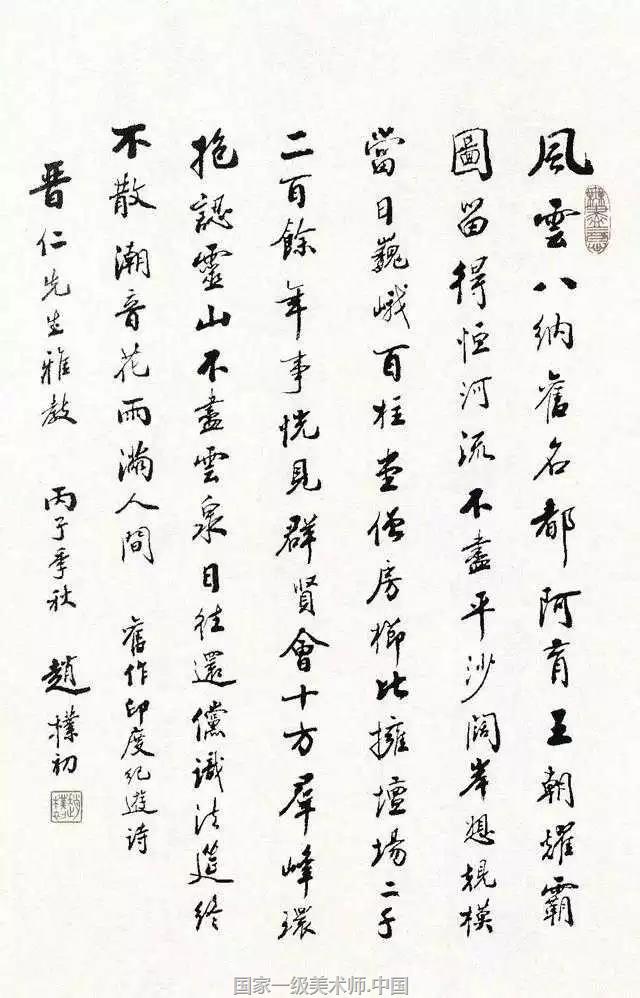 風雲八納舊名都阿育王朝耀霸
圖留得恒河流不盡平沙闊岸想規模
當日巍峨百柱堂僧房櫛比擁壇場二千
二百餘年事恍見群賢會十方羣峰環
抱認靈山不盡雲泉日往還儻識法筵終
不散潮音花雨滿人間 舊作印度紀遊詩
晋仁先生雅教 丙子季秋 趙樸初
趙樸初
国家一级美术师.中国